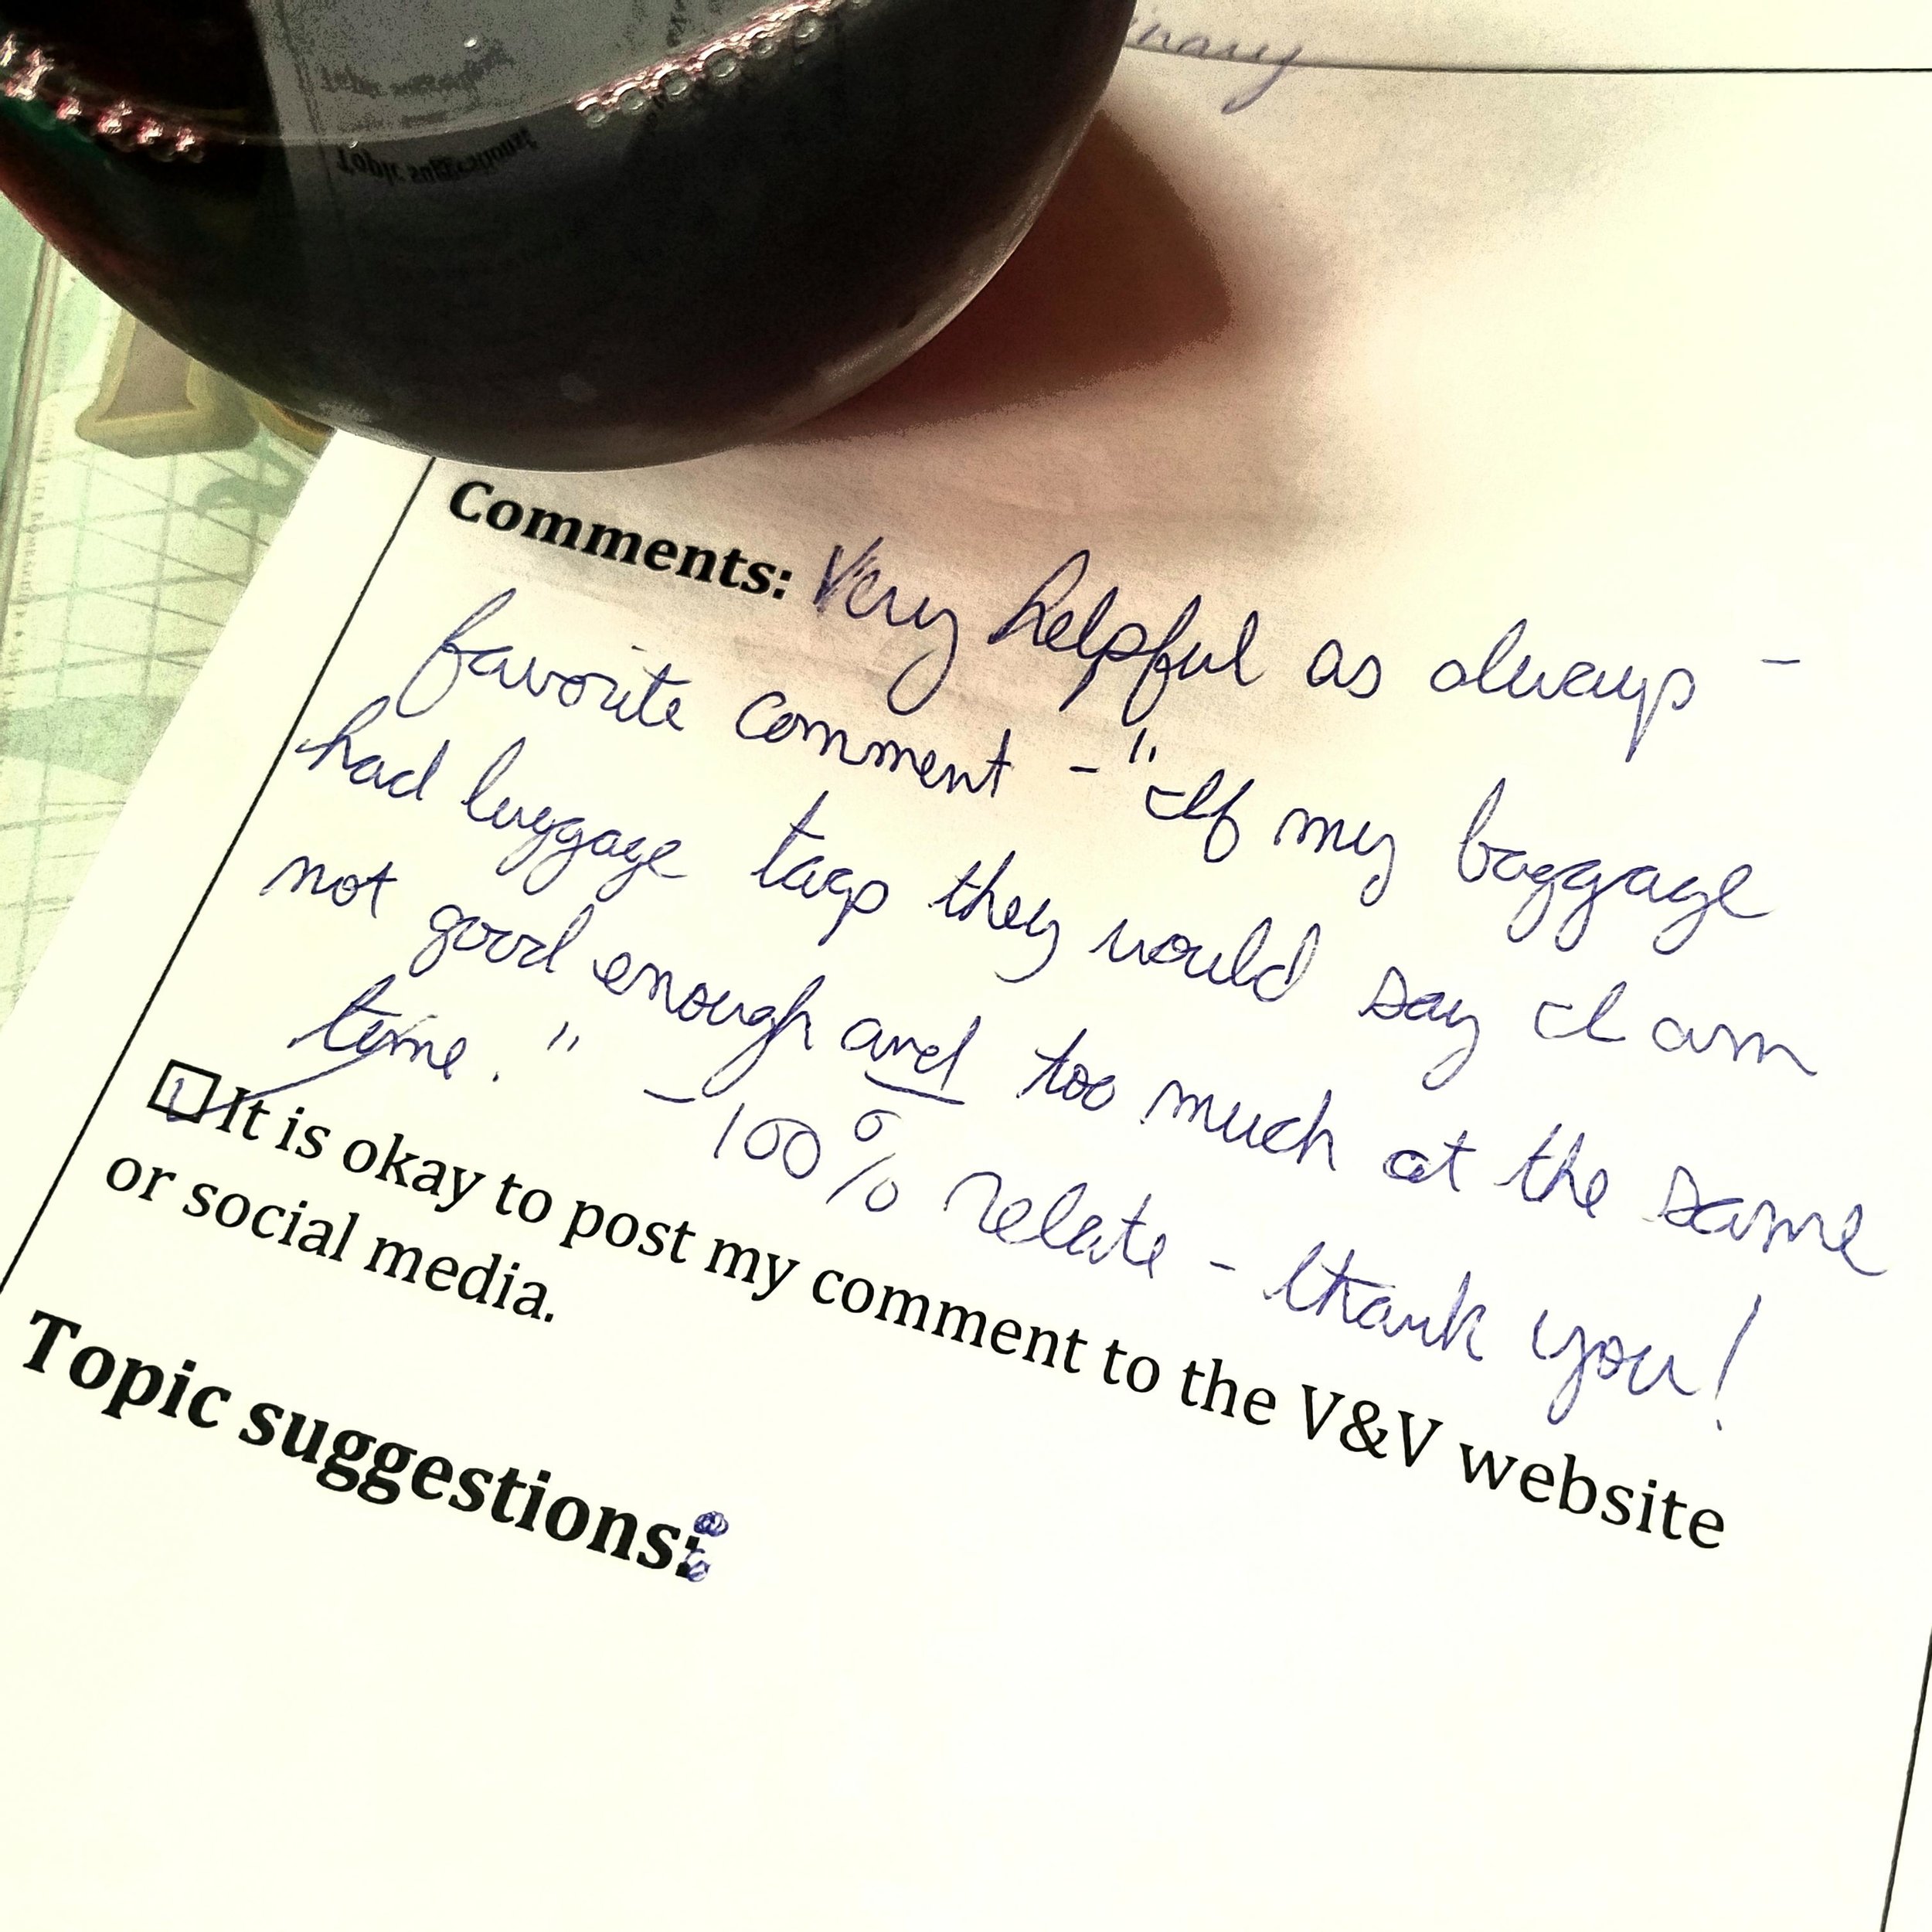 Comments: Very helpful as always -
favorite comment - "If my baggage
had luggage tags they would say I am
not good enough and too much at the same
time." - 100% relate - thank you!
It is okay to post my comment to the V&V website
or social media.
Topic suggestions: